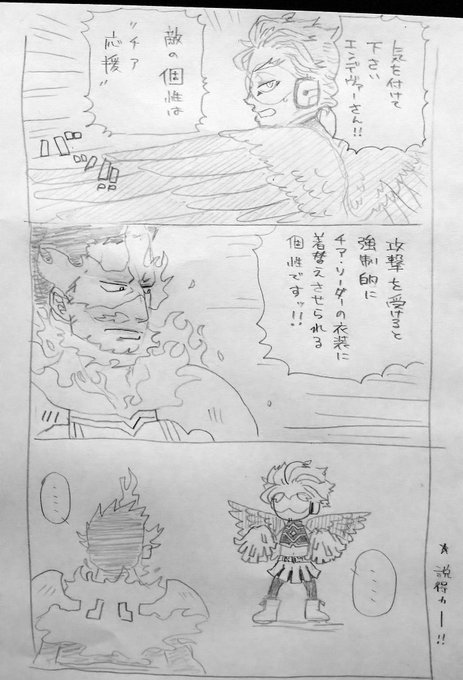 気を付けて
下さい
エンデヴァーさん!!
敵の個性は
“チア
応援”
攻撃を受けると
強制的に
チア・リーダーの衣装に
着替えさせられる
個性ですッ!!
・・・・
・・・・
★説得力ー!!